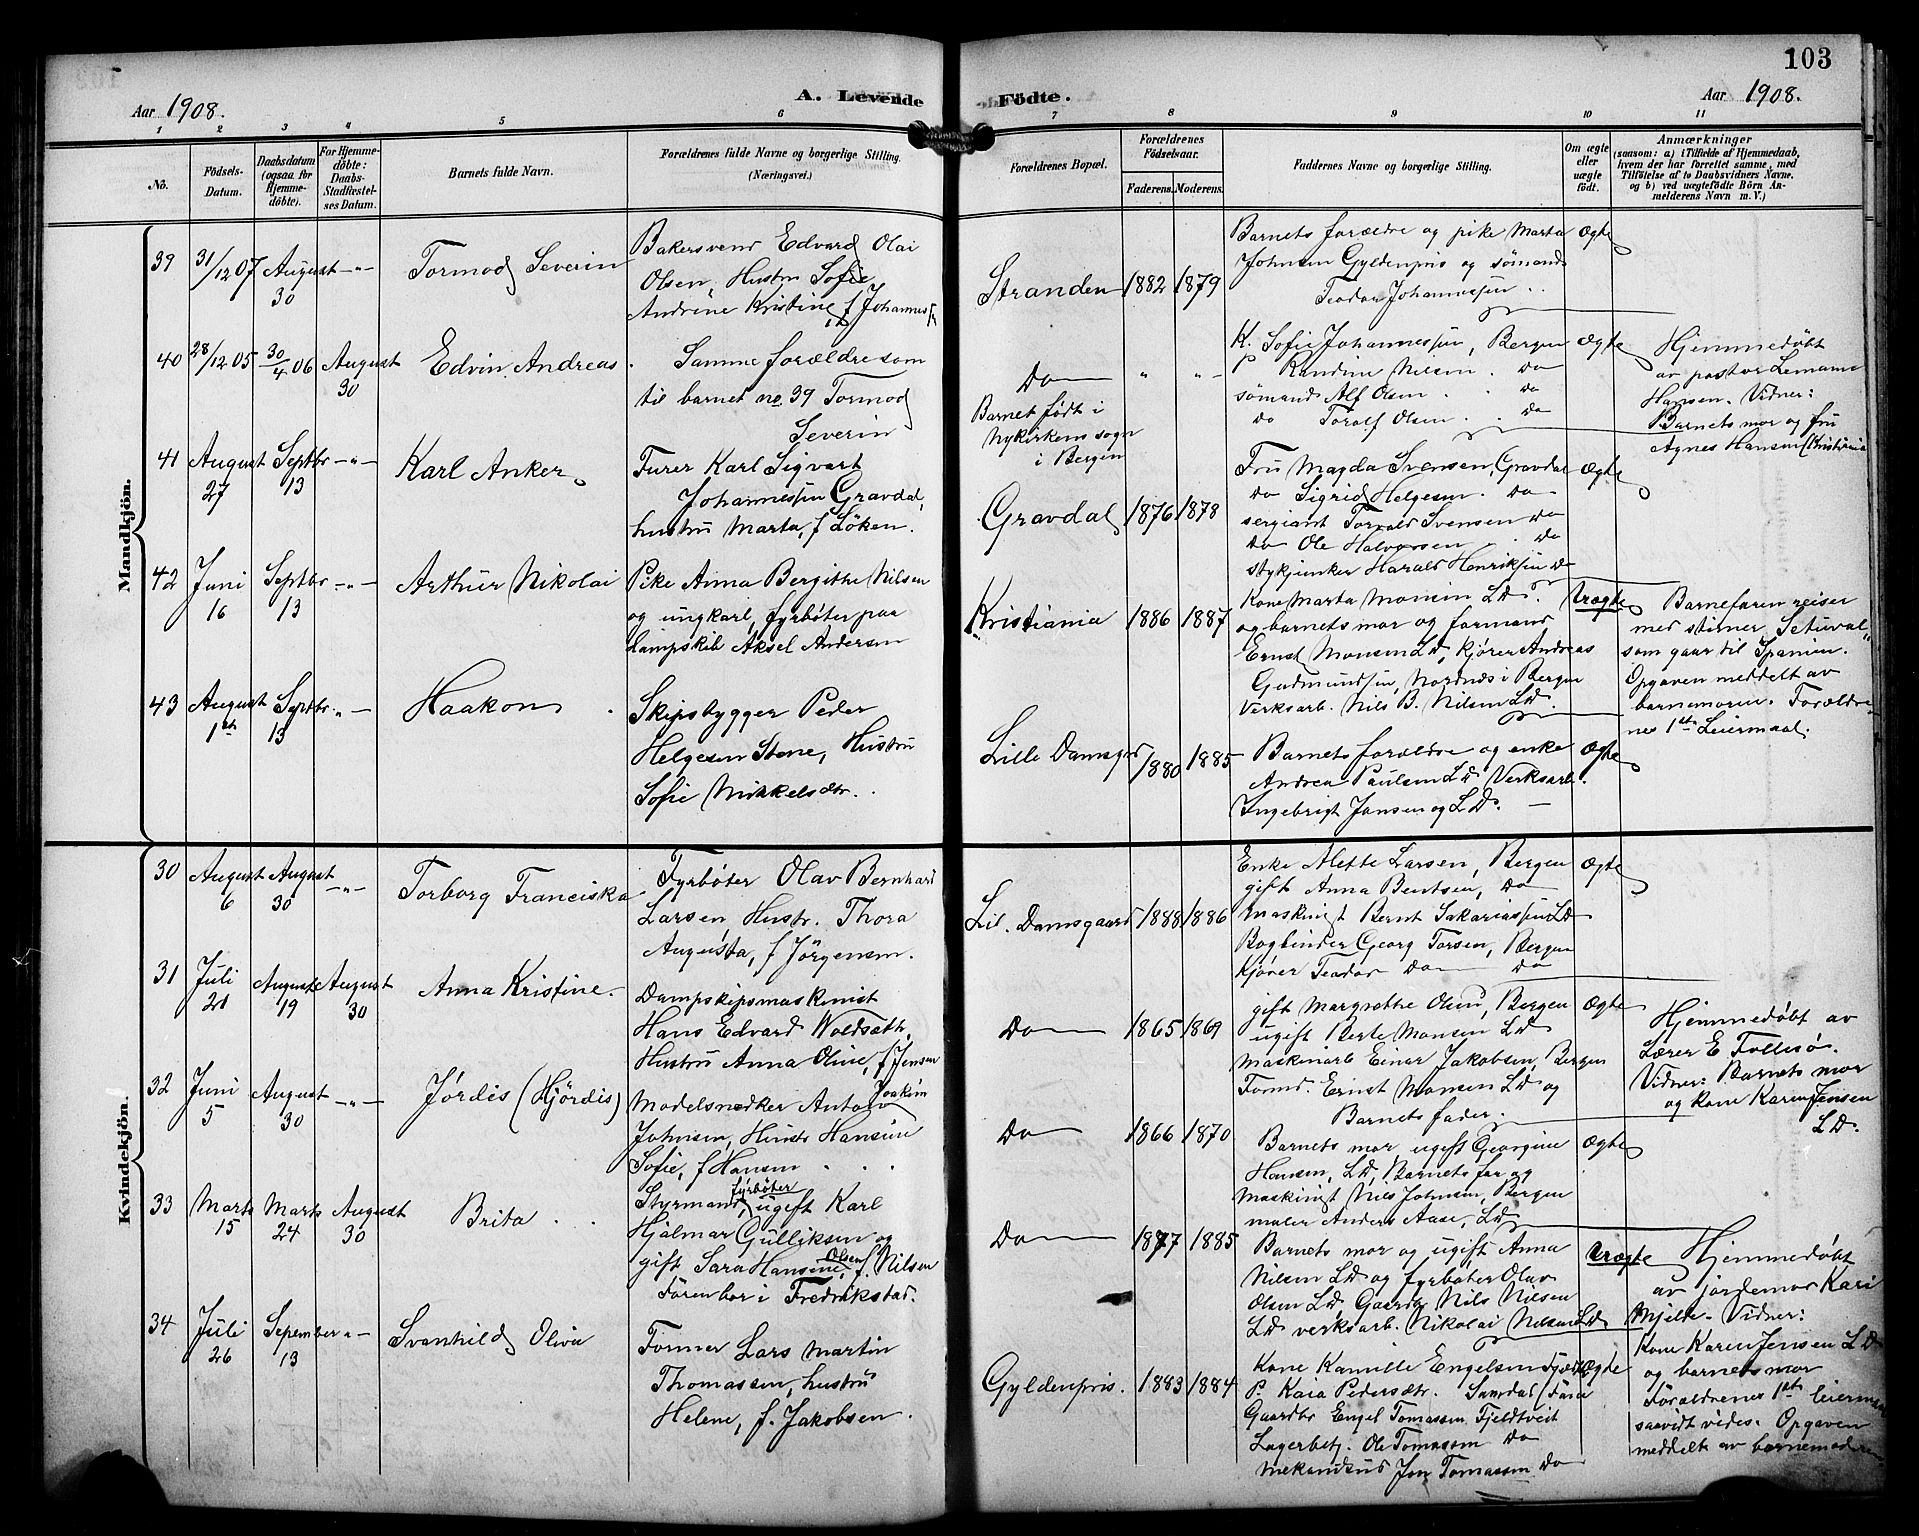 103
Aar 1908.
A. Levende Födte.
Aar 1908.
1 2 3 4 5 6 7 8 9 10 11
No.
Födsels-Datum.
Daabsdatum (ogsaa for Hjemmedöbte).
For Hjemmedöbte: Daabs-Stadfestelses Datum.
Barnets fulde Navn.
Forældrenes fulde Navne og borgerlige Stilling.
(Næringsvei.)
Forældrenes Bopæl.
Forældrenes Födselsaar.
Faderens. Moderens.
Faddernes Navne og borgerlige Stilling.
Om ægte eller uægte födt.
Anmærkninger
(saasom: a) i Tilfælde af Hjemmedaab,
hvem der har forrettet samme, med
Tilföielse af to Daabsvidners Navne,
og b) ved uægtefödte Börn An-
melderens Navn m. V.)
Mandkjön.
39 31/12 07 August 30 -"- Tormod Severin
Bakersvend Edvard Olai
Olsen, Hustru Sofie
Andrine Kristine f Johannes
Stranden 1882 1879
Barnets forældre og pike Marta
Johnsen Gyldenpris og sømand
Teodor Johannessen
Ægte
40 28/12 05 30/4 06 August 30 Edvin Andreas.
Samme forældre som
til barnet no. 39 Tormod
Severin
Do " "
Barnet født i
Nykirkens sogn
i Bergen
K. Sofie Johannessen, Bergen
P. Randine Nilsen. Do
sømand Alf Olsen . Do
do Toralf Olsen . Do
Ægte
Hjemmedøbt
av pastor Lemann
Hansen. Vidner:
Barnets mor og fru
Agnes Hansen Kristiania
41 August 27 Septbr 13 -"- Karl Anker
Furer Karl Sigvart
Johannessen Gravdal,
hustru Marta, f Löken.
Gravdal 1876 1878
Fru Magda Svensen, Gravdal
Do Sigrid Helgesen. Do
sergiant Torvald Svensen Do
Do Ole Halvorsen . Do
stykjunker Harald Henriksen Do
Ægte
42 Juni 16 Septbr 13 -"- Arthur Nikolai
Pike Anna Bergithe Nilsen
og ungkarl, fyrbøter paa
dampskib Aksel Andersen
Kristiania 1886 1887
Kone Marta Monsen LD.
og barnets mor og formand
Ernst Monsen LD, kjører Andreas
Gudmundsen, Nordnes i Bergen
Verksarb. Nils B. Nilsen LD.
Uægte
Barnefaren reiser
med stimer "Setuval"
som gaar til Spanien.
Opgaven meddelt av
barnemoren. Forældre-
nes 1ste Leiermaal.
43 August 1ste Septbr 13 -"- Haakon
Skipsbygger Peder
Helgesen Stene, Hustru
Sofie Mikkelsdtr.
Lille Damsgrd 1880 1885
Barnets forældre og enke
Andrea Paulsen LD Verksarb.
Ingebrigt Jansen og LD.
Ægte
Kvindekjön.
30 August 6 August 30 -"- Torborg Franciska
Fyrbøter Olav Bernhard
Larsen Hustr. Thora
Augusta, f Jörgensen.
Lil. Damsgaard 1888 1886
Enke Alette Larsen, Bergen
gift Anna Bentsen, Do
maskinist Bernt Sakariassen LD
Bogbinder Georg Torsen, Bergen
Kjører Teodor Do Do
Ægte
31 Juli 21 August 19 August 30 Anna Kristine.
Dampskipsmaskinist
Hans Edvard Woldsæth
Hustru Anna Oline, f Jensen
Do 1865 1869
gift Margrethe Olsen, Bergen
ugift Berte Monsen LD
Maskinarb Einar Jakobsen, Bergen
Formd. Ernst Monsen LD og
Barnets fader.
Ægte
Hjemmedøbt av
Lærer E Follesø.
Vidner: Barnets mor
og kone Karen Jensen
LD.
32 Juni 5 August 30 -"- Jørdis (Hjördis)
Modelsnedker Anton Joakim
Johnsen, Hustr Hansine
Sofie, f Hansen
Do 1866 1870
Barnets mor, ugift Georgine
Hansen, LD, Barnets far og
Maskinist Nils Johnsen, Bergen
maler Anders Aase, LD
Ægte
33 Marts 15 Marts 24 August 30 Brita
Styrmand, fyrbøter ugift Karl
Hjalmar Gulliksen og
gift, Sara Hansine Olsen, f. Nilsen
Faren bor i Fredrikstad.
Do 1877 1885
Barnets mor og ugift Anna
Nilsen LD og fyrbøter Olav
Olsen LD, Gaardbr Nils Nilsen
LD verksarb. Nikolai Nilsen LD
Uægte
Hjemmedøbt
av jordemor Kari
Mjelte. Vidner:
Kone Karen Jensen LD
og barnets mor
Forældrenes 1ste leiermaal
saavidt vides. Opgaven
meddelt av barnemoderen
34 Juli 26 Sepember 13 "- Svanhild Oliva
Former Lars Martin
Thomassen, hustru
Helene, f. Jakobsen.
Gyldenpris. 1883 1884
Kone Kamille Engelsen Fjeld
P. Kaia Pedersdtr. Samdal, Fana
Gaardbr Engel Tomassen Fjeldtveit
Lagerbetj. Ole Tomassen Do
mekanikus Jon Tomassen Do
Ægte